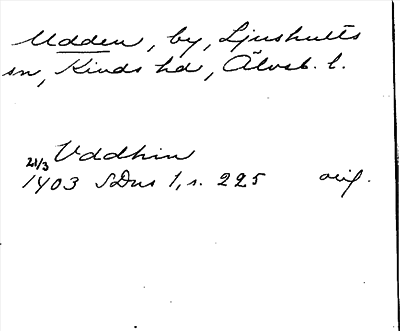 Udden, by, Ljushults
sn, Kinds hd, Älvsb. l.
Vddhin
21/3
1403 SDns 1, s. 225 orig.